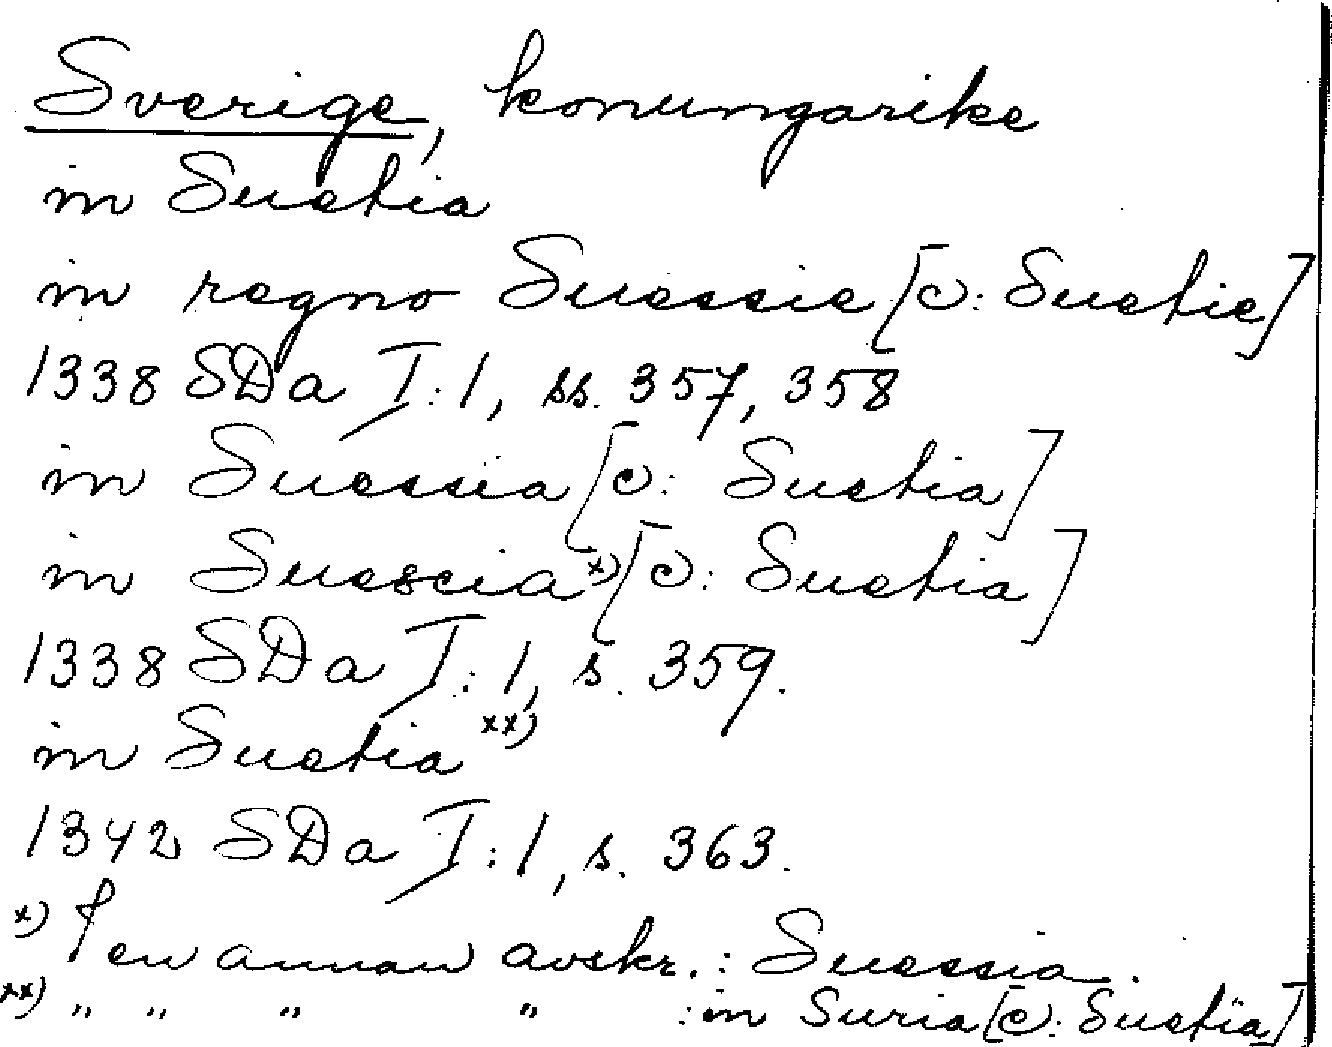 Sverige, konungarike
in Suetia
in regno Suessie [ɔ: Suetie]
1338 SDa I:1, ss. 357, 358
in Suessia [ɔ: Suetia]
in Suescia x) [ɔ: Suetia]
1338 SDa I:1, s. 359.
in Suetia xx)
1342 SDa I:1, s. 363.
x) I en annan avskr.: Suessia.
xx) " " " " : in Suria [ɔ: Suetia]